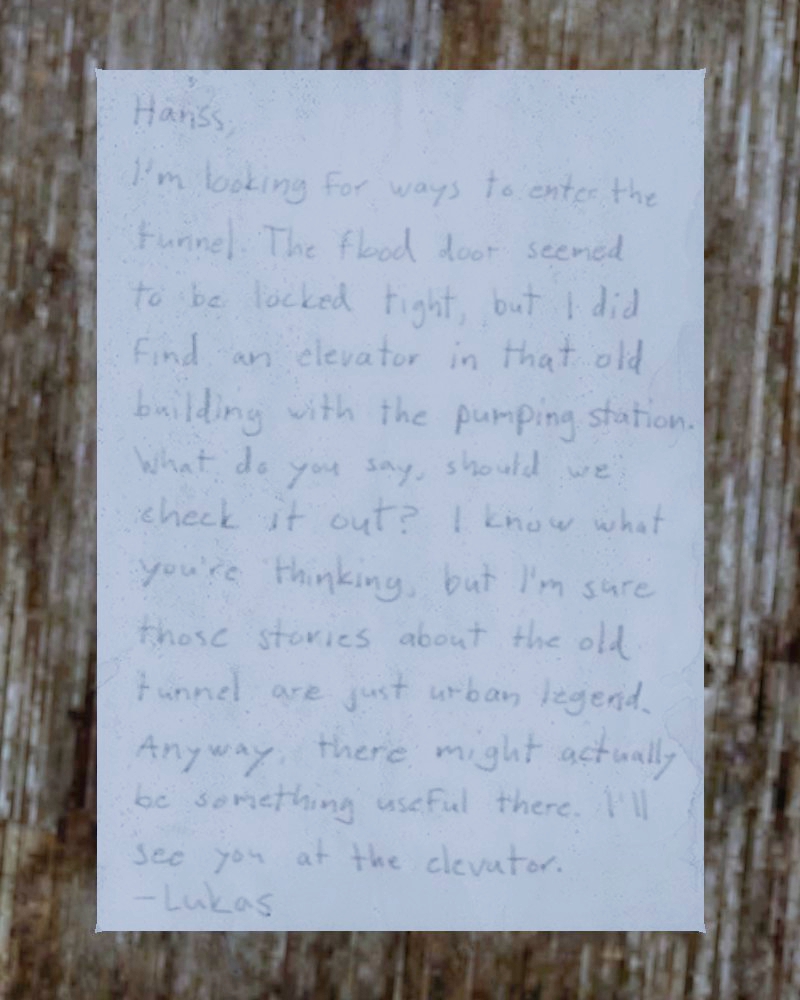 Hanss,
I'm looking for ways to enter the
tunnel. The flood door seemed
to be locked tight, but I did
find an elevator in that old
building with the pumping station.
What do you say, should we
check it out? I know what
you're thinking, but I'm sure
those stories about the old
tunnel are just urban legend.
Anyway, there might actually
be something useful there. I'll
see you at the elevator.
-Lukas